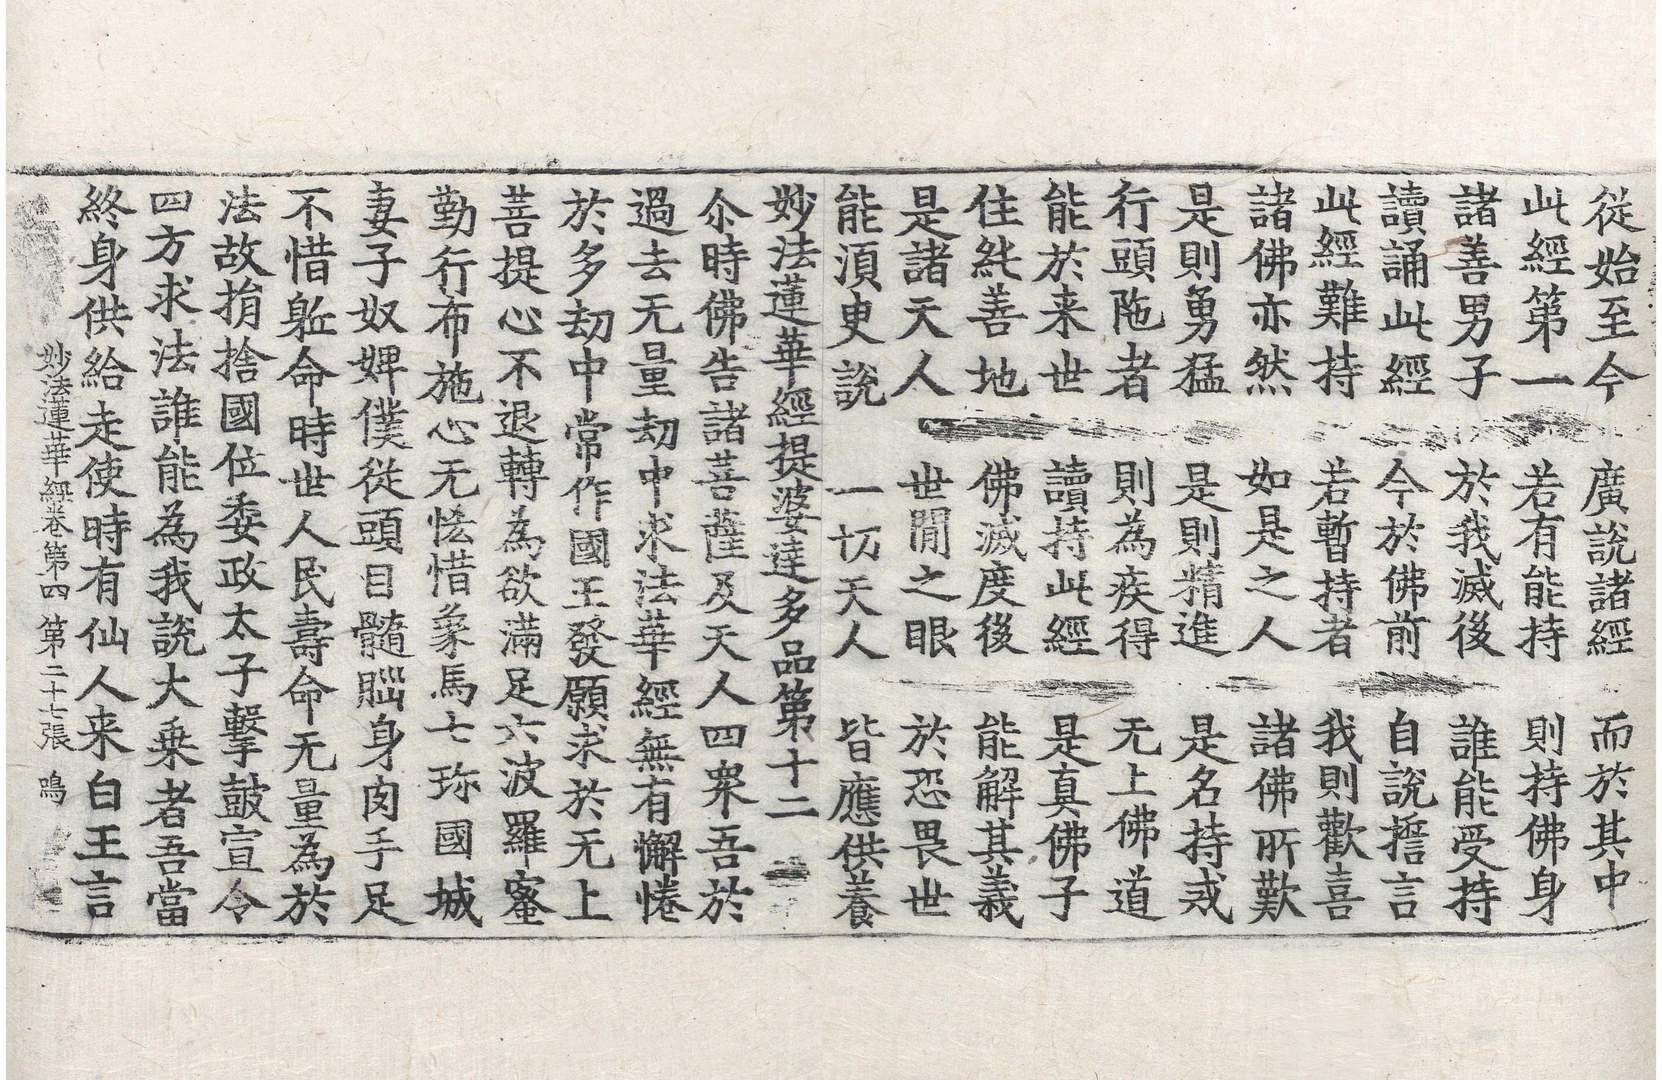 從始至今 廣說諸經 而於其中
此經第一 若有能持 則持佛身
諸善男子 於我滅後 誰能受持
讀誦此經 今於佛前 自說誓言
此經難持 若暫持者 我則歡喜
諸佛亦然 如是之人 諸佛所歎
是則勇猛 是則精進 是名持戒
行頭陁者 則為疾得 无上佛道
能於来世 讀持此經 是真佛子
住純善地 佛滅度後 能解其義
是諸天人 世間之眼 於恐畏世
能湏臾說 一切天人 皆應供養
妙法蓮華經提婆達多品第十二
尒時佛告諸菩薩及天人四衆吾於
過去无量劫中求法華經無有懈惓
於多劫中常作國王發願求於无上
菩提心不退轉為欲滿足六波羅蜜
勤行布施心无恡惜象馬七珎國城
妻子奴婢僕從頭目髓𦛁身肉手足
不惜躯命時世人民壽命无量為於
法故捐捨國位委政太子擊鼓宣令
四方求法誰能為我說大乗者吾當
終身供給走使時有仙人来白王言
妙法蓮華經卷第四 第二十七張 鳴